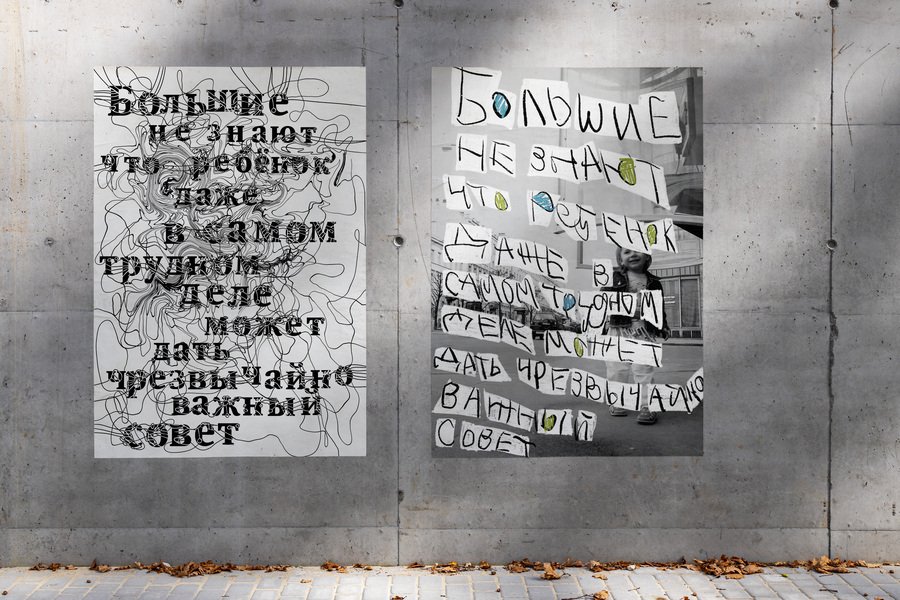 Большие
не знают
что ребёнок
даже
в самом
трудном
деле
может
дать
чрезвычайно
важный
совет
БОЛЬШИЕ
НЕ ЗНАЮТ
ЧТО РЕБЕНОК
ДАЖЕ В
САМОМ ТРУДНОМ
ДЕЛЕ МОЖЕТ
ДАТЬ ЧРЕЗВЫЧАЙНО
ВАЖНЫЙ
СОВЕТ